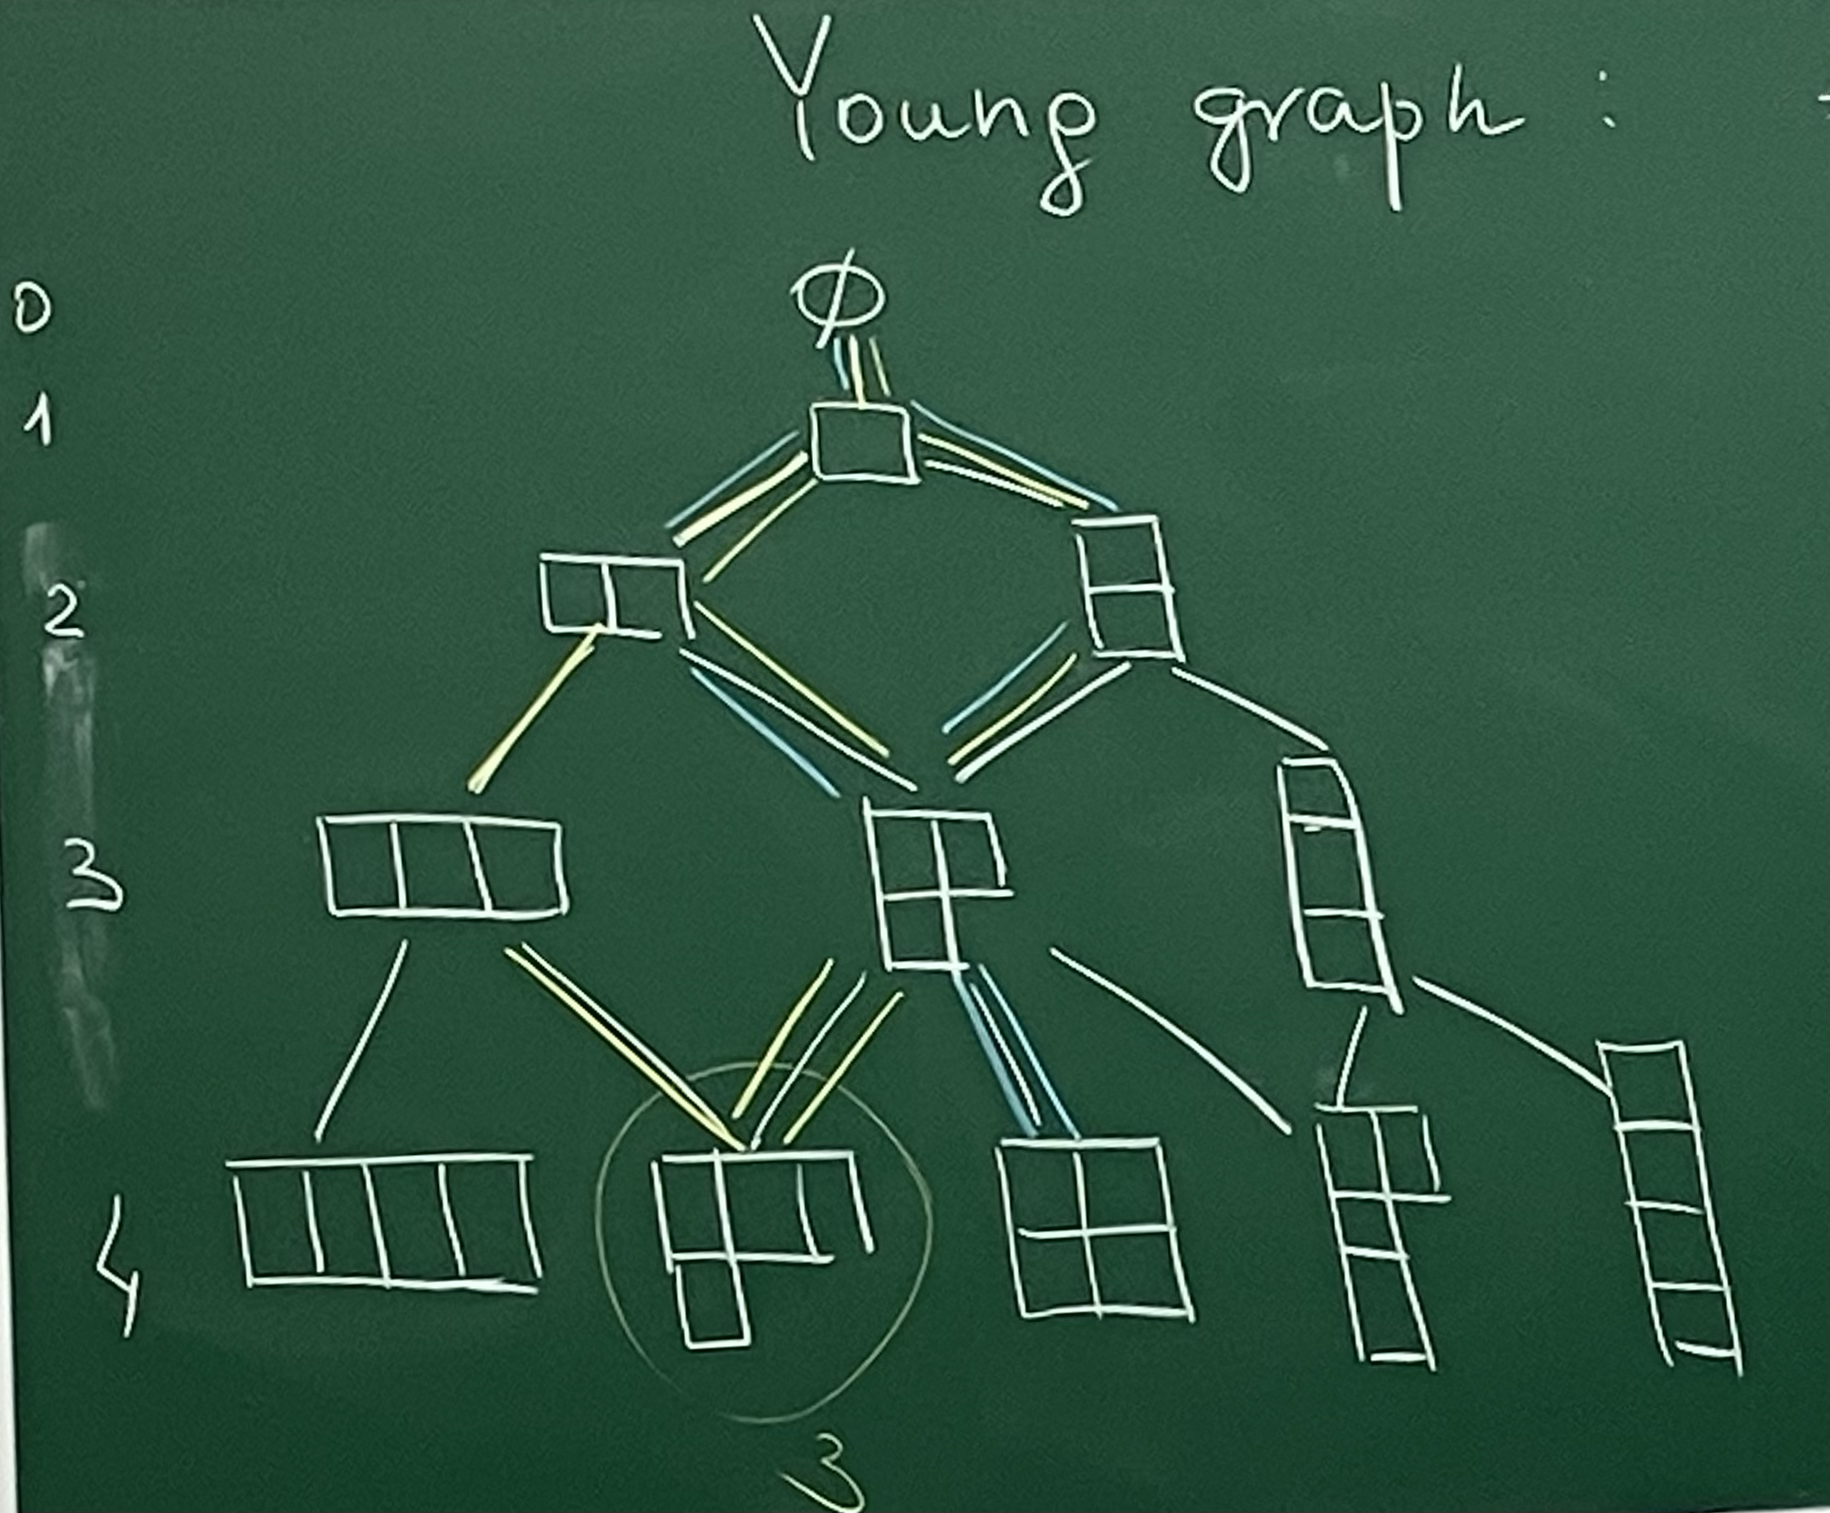 Young graph :
∅
0
1
2
3
4
3